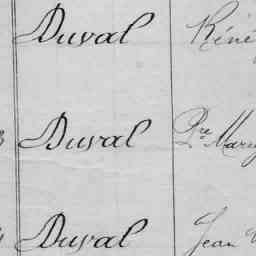 Duval Réné
Duval Pre Mary
Duval Jean